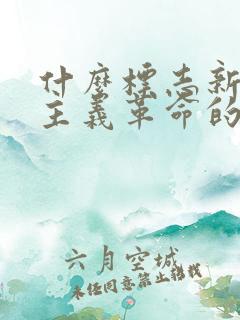 什麼標志新
主義革命的
六月空城
未经同意禁止转载